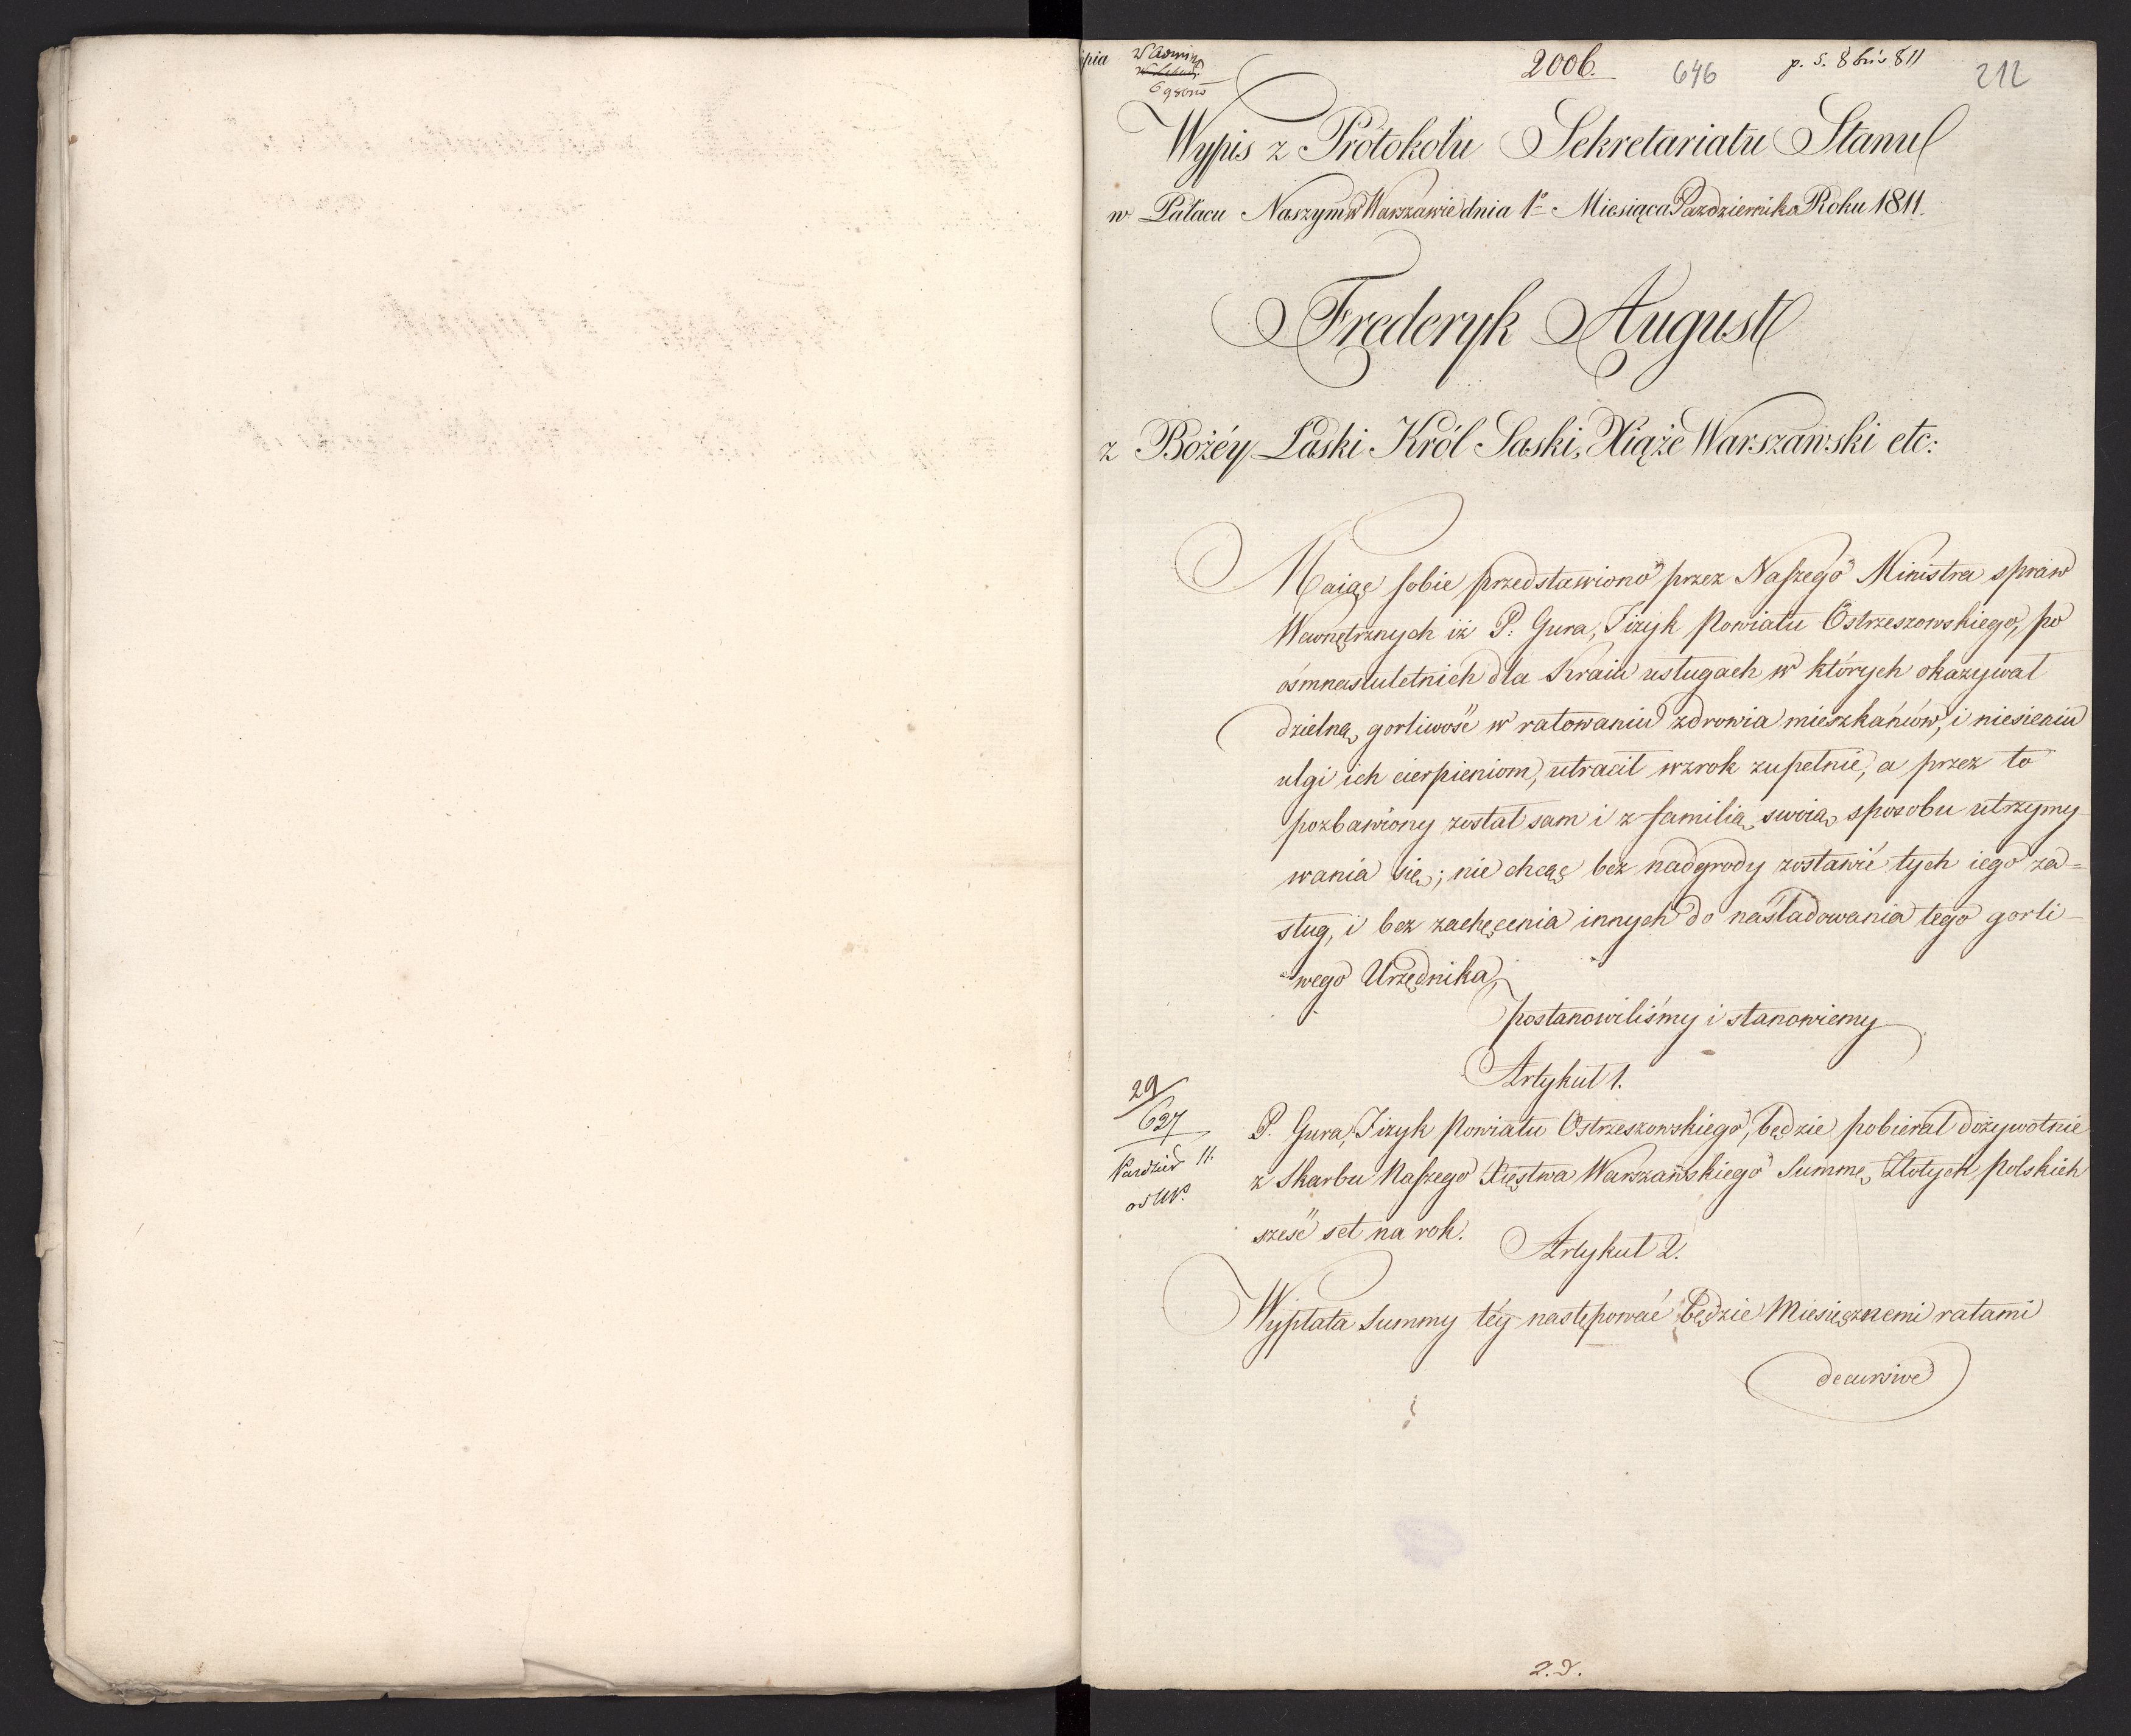 2006. 646 p. 5. 8bris 811 212
Wypis z Protokołu Sekretariatu Stanu
w Pałacu Naszym w Warszawie dnia 1º Miesiąca Pazdziernika Roku 1811.
Frederyk August
z Bożéy Łaski Król Saski, Xiąże Warszawski etc:
Maiąc sobie przedstawiono przez Naszego Ministra spraw
Wewnętrznych iż P. Gura, Fizyk Powiatu Ostrzeszowskiego, po
ósmnastuletnich dla Kraiu usługach w których okazywał
dzielną gorliwość w ratowaniu zdrowia mieszkańców, i niesieniu
ulgi ich cierpieniom, utracił wzrok zupełnie, a przez to
pozbawiony został sam i z familią swoią sposobu utrzymy
wania się; nie chcąc bez nadgrody zostawić tych iego za=
sług, i bez zachęcenia innych do naśladowania tego gorli-
wego Urzędnika,
postanowiliśmy i stanowiemy
Artykuł 1.
29
627
Pazdzier 11.
P. Gura, Fizyk Powiatu Ostrzeszowskiego, będzie pobierał dożywotnie
z Skarbu Naszego Xięstwa Warszawskiego Summę Złotych Polskich
sześć set na rok.
Artykuł 2.
Wypłata Summy téy następować będzie Miesięcznemi ratami
decursive
2.D.